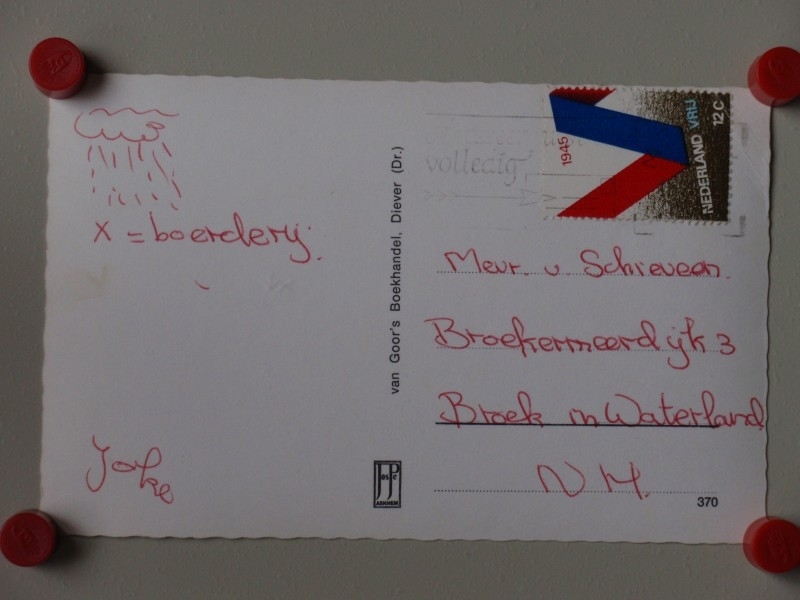 X = boerderij.
Joke
van Goor's Boekhandel, Diever (Dr.)
JosPé
ARNHEM
volledig
1945
NEDERLAND VRIJ
12 C
Mevr. v. Schieveen.
Broekermeerdijk 3
Broek in Waterland
N H.
370